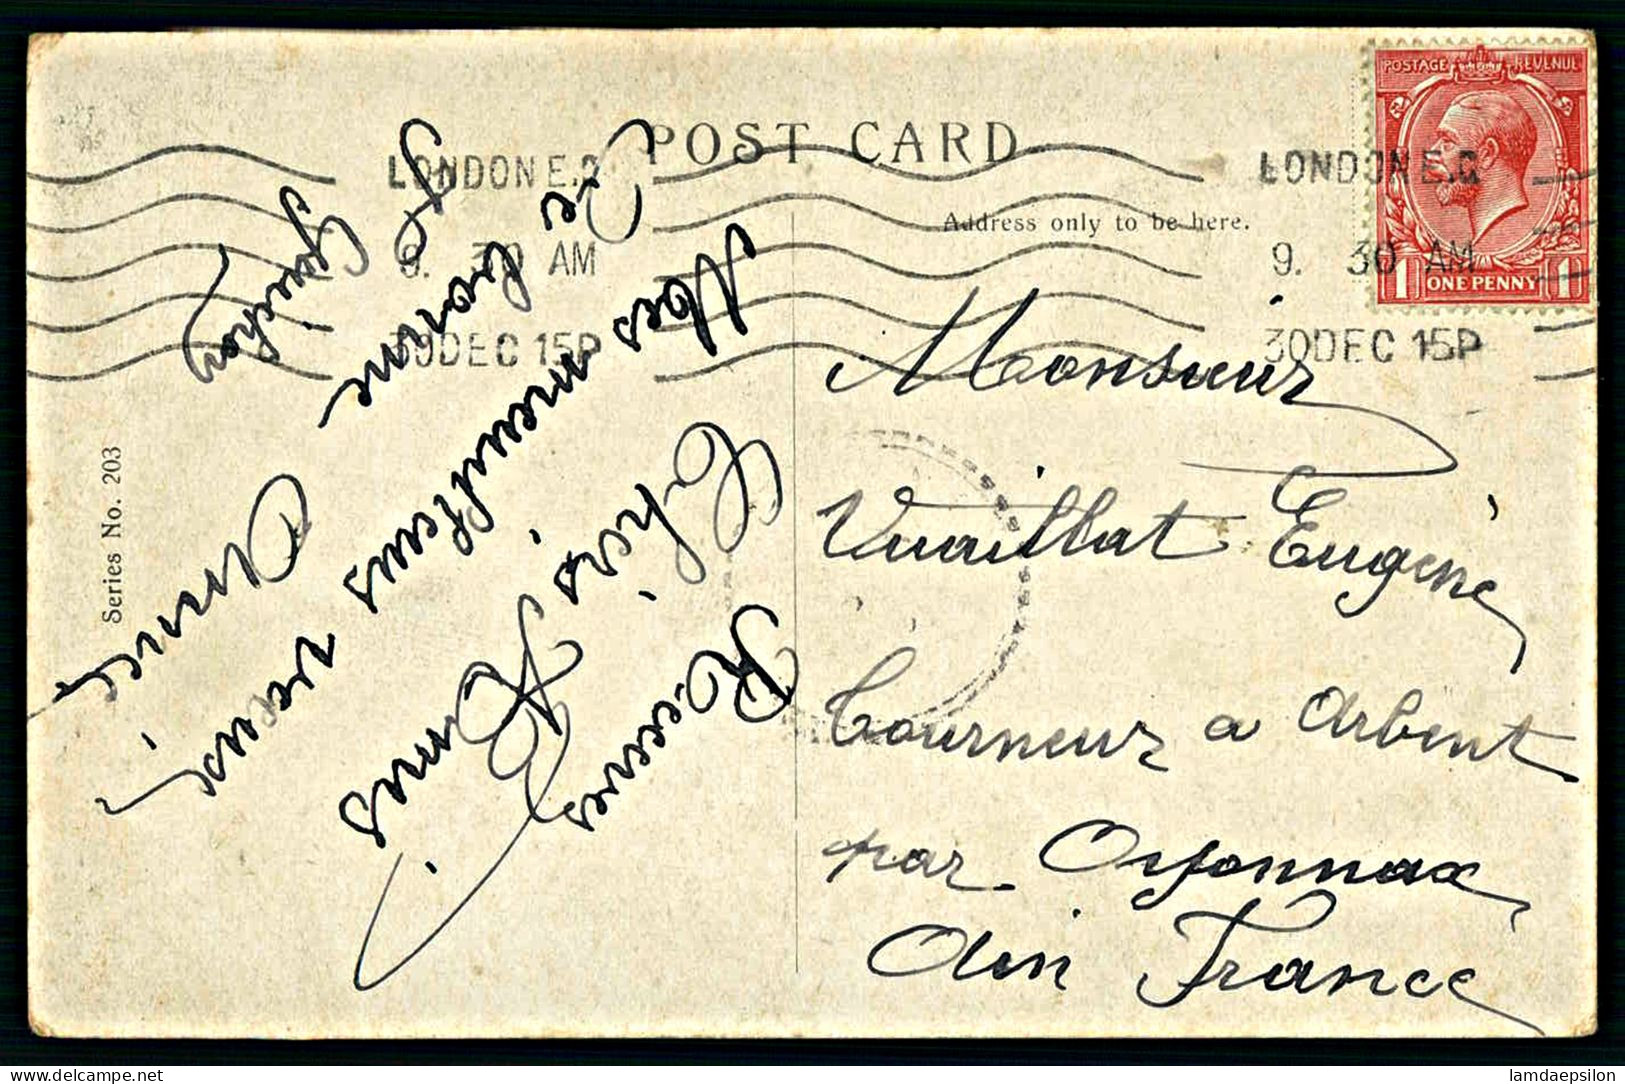 POST CARD
LONDON E.C
9. 30 AM
30 DEC 15 P
LONDON E.C
9. 30 AM
30 DEC 15 P
POSTAGE REVENUE
1 ONE PENNY 1
Address only to be here.
Series No. 203
Monsieur
Vuaillat Eugène
tourneur a Arbent
par Oyonnax
Ain France
Chers Amis
Recevez
Mes meilleurs vœux
De bonne
Année
Guichon
lamdaepsilon.delcampe.net